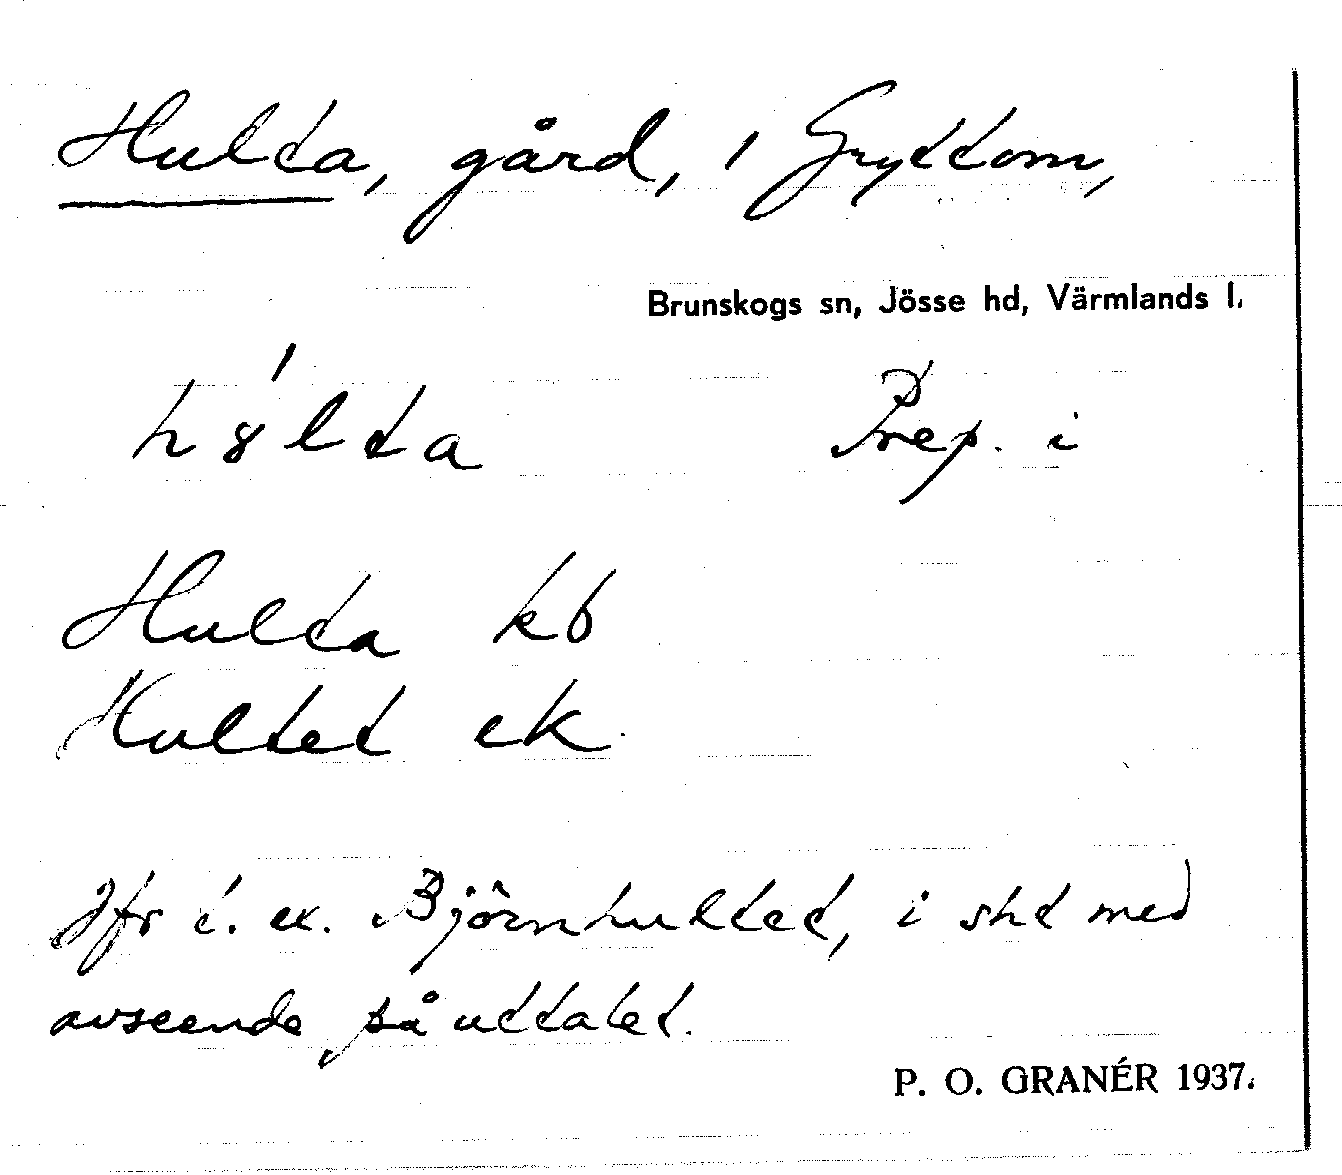 Hulta, gård, i Gryttom,
Brunskogs sn, Jösse hd, Värmlands l.
h8́lta Prep. i
Hulta kb
Hultet ek.
Jfr t. ex. Björnhultet, i sht med
avseende på uttalet.
P. O. GRANÉR 1937.